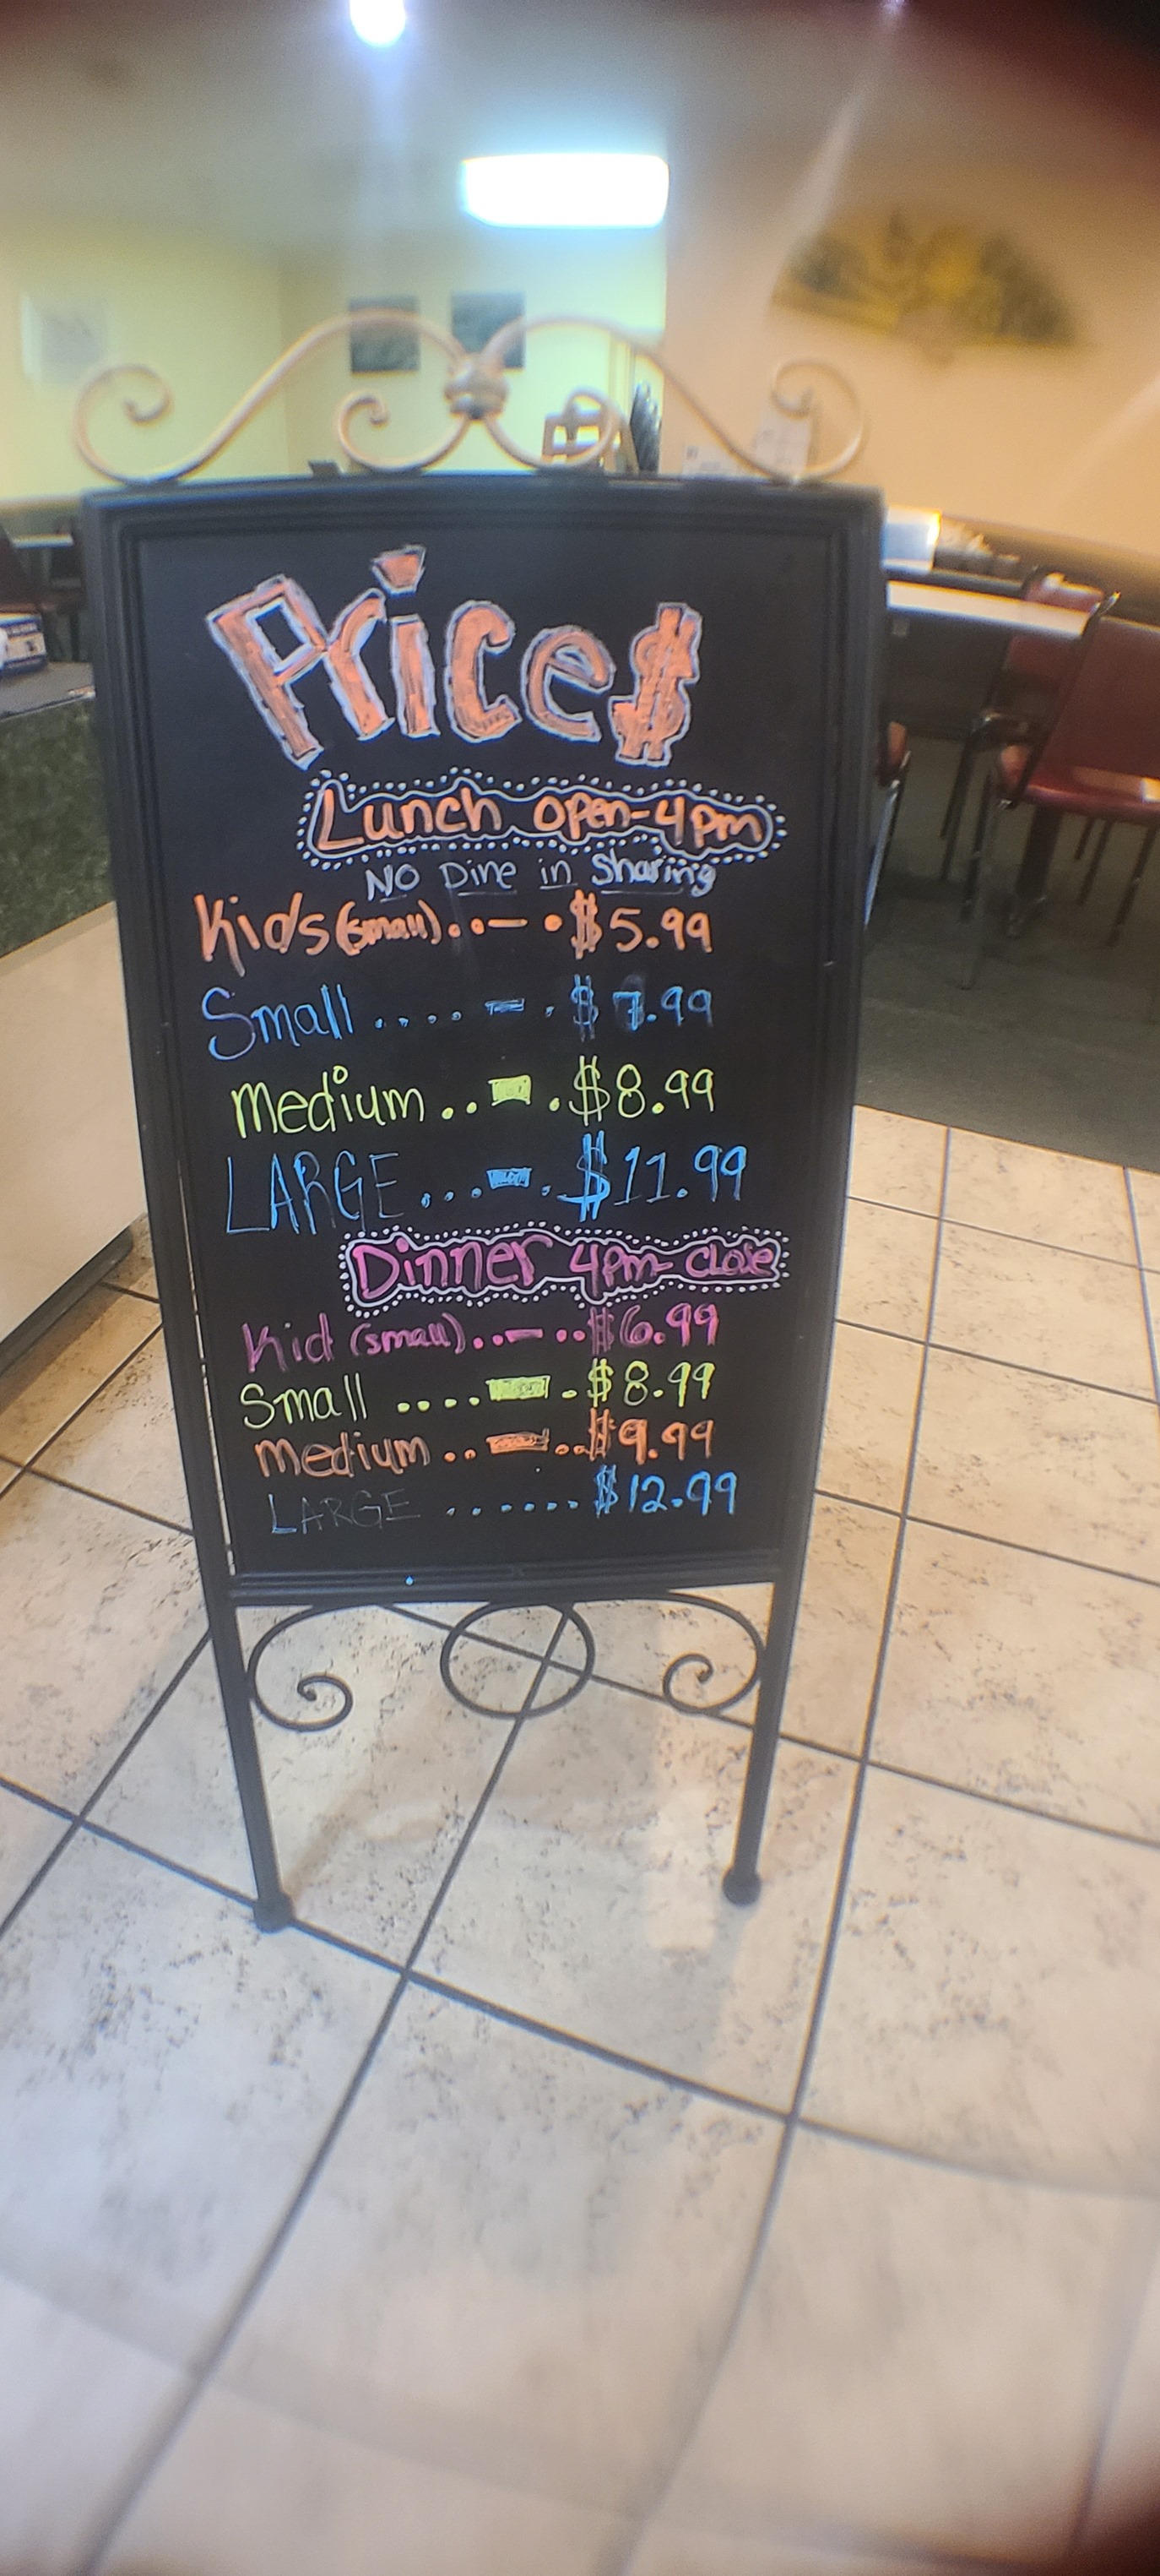 Price$
Lunch open-4pm
No Dine in Sharing
Kids (small)..-.$5.99
Small ....-.$7.99
Medium..-.$8.99
LARGE...-.$11.99
Dinner 4pm-close
Kid (small)..-..$6.99
Small ....-.$8.99
Medium ..-..$9.99
LARGE .......$12.99